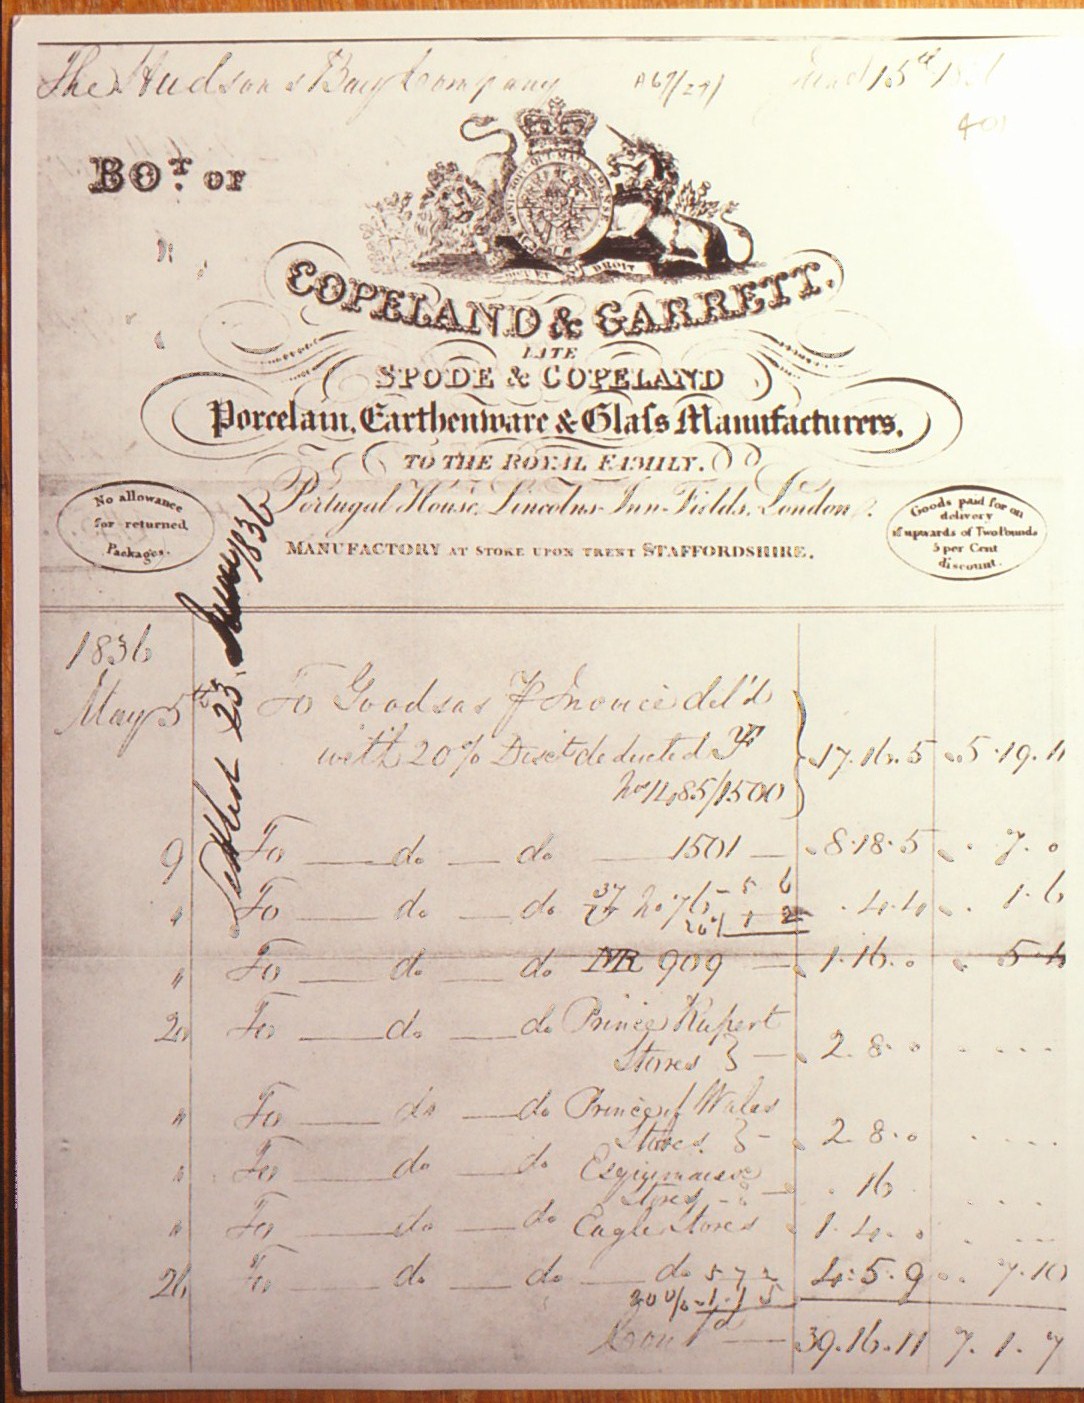 The Hudsons Bay Company A67/29/ June 15th 1836
401
BOT. OF
HONI SOIT QUI MAL Y PENSE
DIEU ET MON DROIT
COPELAND & GARRETT.
LATE
SPODE & COPELAND
Porcelain, Earthenware & Glaſs Manufacturers,
TO THE ROYAL FAMILY.
Portugal House, Lincolns-Inn-Fields, London.
MANUFACTORY AT STOKE UPON TRENT STAFFORDSHIRE.
No allowance
for returned
Packages.
Goods paid for on
delivery
if upwards of Two Pounds
5 per Cent
discount.
1836
May 5th To Goods as Invoice del'd
with 20% Disct deducted
Nos 1485/1500 17.16.5 5.19.11
9 To do do 1501 8.18.5 7.0
" To do do 37 No 76 - 5 6 4.4 1.6
20% 1 2
" To do do NR 909 1.16.0
20 To do do Prince Rupert
Stores } 2.8.0
" To do do Prince of Wales
Stores } 2.8.0
" To do do Esquimaux
Stores 16
" To do do Eagle Stores 1.4.0
26 To do do do 5 7 2 4.5.9 7.10
20% 1.1.5
39.16.11 7.1.7
1836